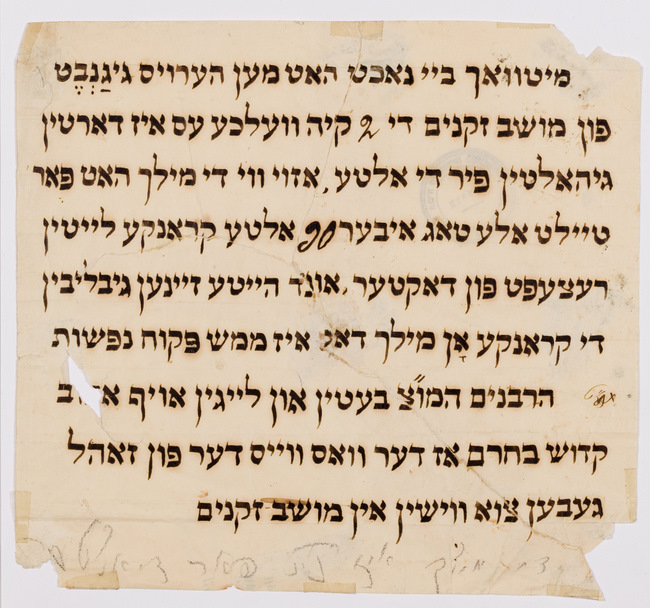 מיטוואך ביי נאכט האט מען הערויס גיגַנְבֶט
פון מושב זקנים די 2 קיה וועלכע עס איז דארטין
גיהאלטין פיר די אלטע, אזוי ווי די מילך האט פאר
טיילט אלע טאג איבער 90 אלטע קראנקע לייטין
רעצעפט פון דאקטער, אונד הייטע זיינען גיבליבין
די קראנקע אָן מילך דאס איז ממש פקוח נפשות
הרבנים המו״צ בעטין און לייגין אויף
קדוש בחרם אז דער וואס ווייס דער פון זאהל
געבען צוא ווישין אין מושב זקנים